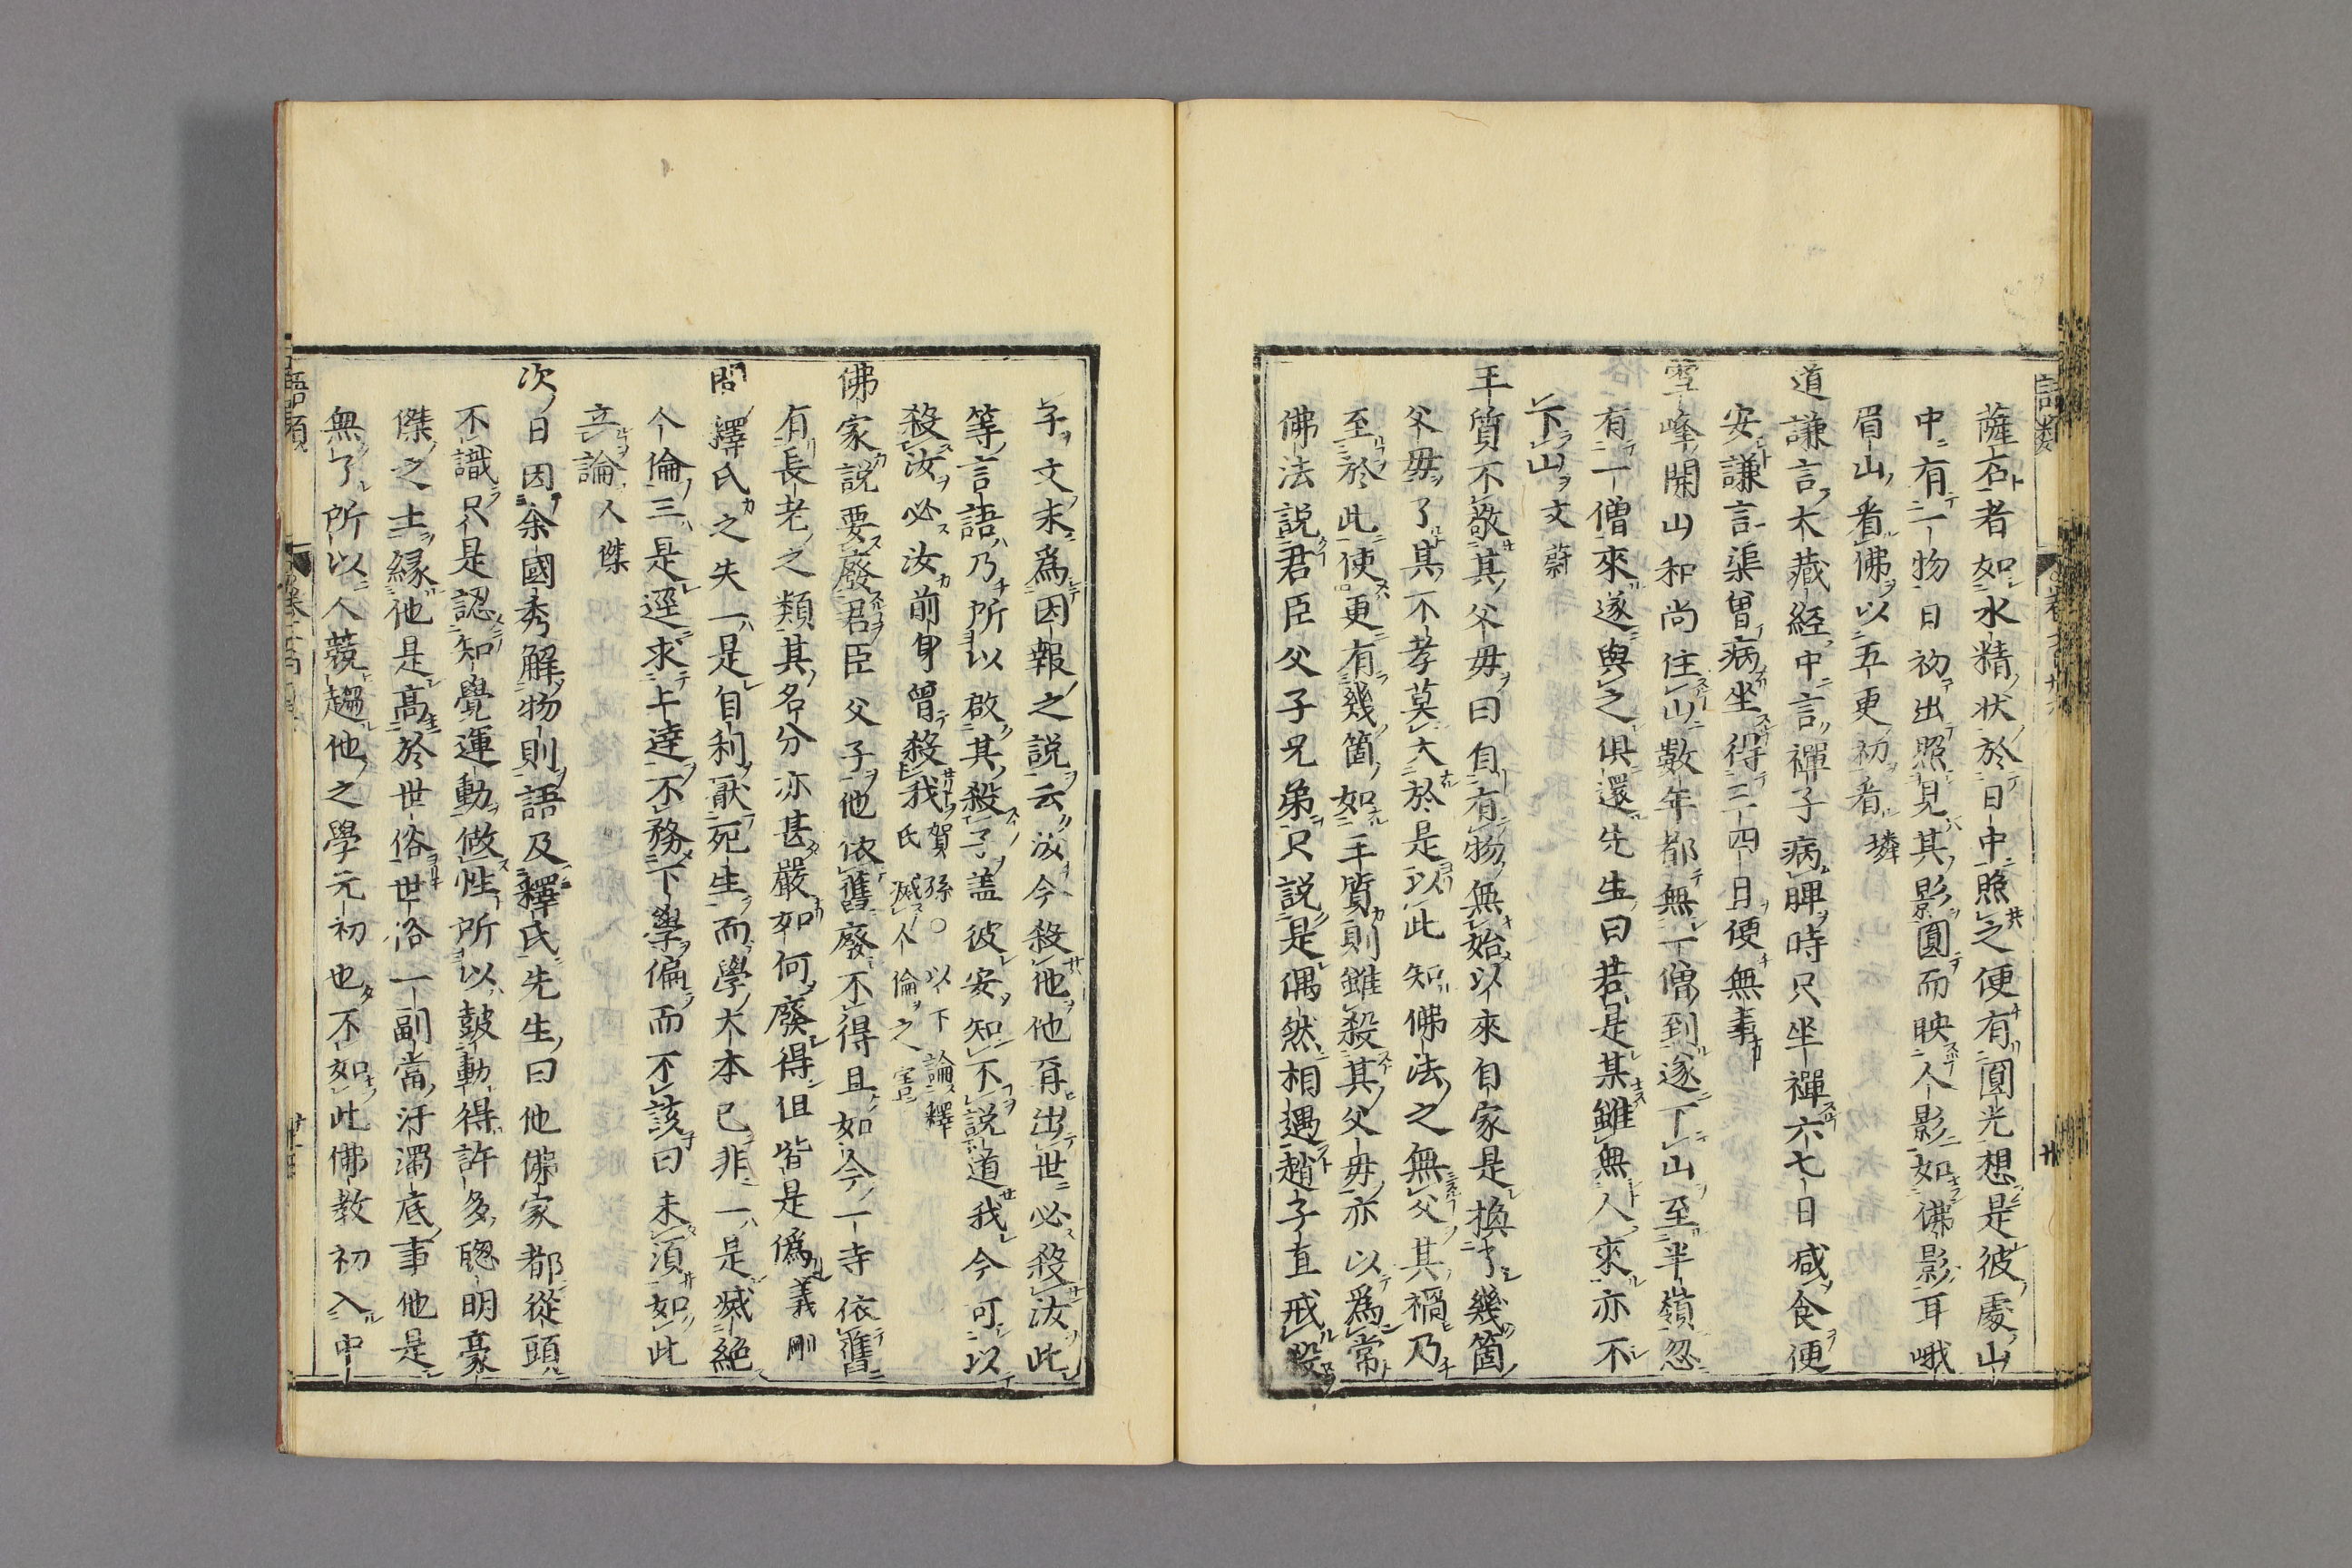 語類
薩石者如水精状於日中照之便有圓光想是彼處山
中有一物日初出照見其影圓而映人影如佛影耳峨
眉山看佛以五更初看璘
道謙言大藏経中言禪子病脾時只坐禪六七日减食便
安謙言渠曾病坐得三四日便無事
雪峰開山和尚住山數年都無一僧到遂下山至半嶺忽
有一僧來遂與之俱還先生曰若是某雖無人來亦不
下山文蔚
王質不敬其父毋曰自有物無始以來自家是換了幾箇
父毋了其不孝莫大於是以此知佛法之無父其禍乃
至於此使更有幾箇如王質則雖殺其父毋亦以為常
佛法説君臣父子兄弟只説是偶然相遇趙子直戒殺
子文末為因報之説云汝今殺他他再出世必殺汝此
等言語乃所以啟其殺子盖彼安知不説道我今可以
殺汝必汝前身曾殺我賀孫○以下論釋氏滅人倫之害
佛家説要廢君臣父子他依舊廢不得且如今一寺依舊
有長老之類其名分亦甚嚴如何廢得但皆是偽義剛
問釋氏之失一是自利厭死生而學大本已非二是滅絶
人倫三是逕求上達不務下學偏而不該曰未須如此
立論人傑
次日因余國秀解物則語及釋氏先生曰他佛家都從頭
不識只是認知覺運動做性所以皷動得許多聦明豪
傑之士縁他是高於世俗世俗一副當汙濁底事他是
無了所以人競趨他之學元初也不如此佛教初入中
語類